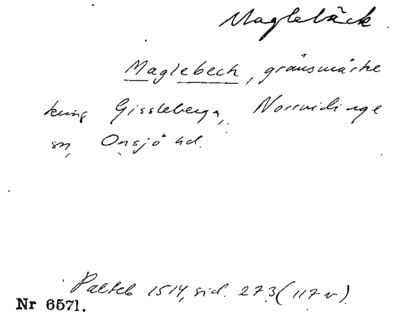 Maglebäck
Maglebeck, gränsmärke
kring Gissleberga, Norrvidinge
sn, Onsjö hd.
Palteb 1514, sid. 273 (117 v).
Nr 6571.